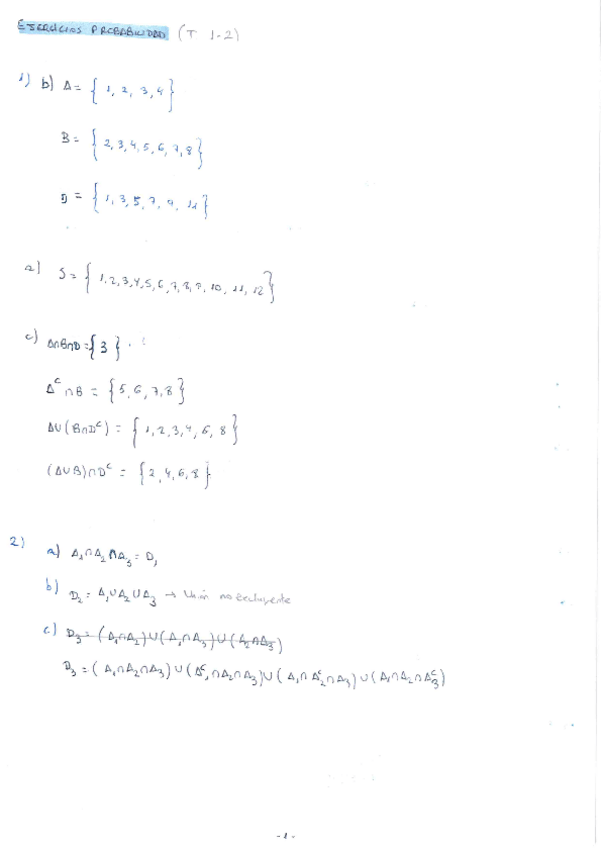 EJERCICIOS PROBABILIDAD (T 1-2)
1) b) A = { 1, 2, 3, 4 }
B = { 2, 3, 4, 5, 6, 7, 8 }
D = { 1, 3, 5, 7, 9, 11 }
a) S = { 1, 2, 3, 4, 5, 6, 7, 8, 9, 10, 11, 12 }
c) A∩B∩D = { 3 }
Aᶜ∩B = { 5, 6, 7, 8 }
A∪(B∩Dᶜ) = { 1, 2, 3, 4, 6, 8 }
(A∪B)∩Dᶜ = { 2, 4, 6, 8 }
2) a) A₁∩A₂∩A₃ = D₁
b) D₂ = A₁∪A₂∪A₃ → Unión no excluyente
c) D₃ = (A₁∩A₂)∪(A₁∩A₃)∪(A₂∩A₃)
D₃ = (A₁∩A₂∩A₃)∪(A₁ᶜ∩A₂∩A₃)∪(A₁∩A₂ᶜ∩A₃)∪(A₁∩A₂∩A₃ᶜ)
- 1 -